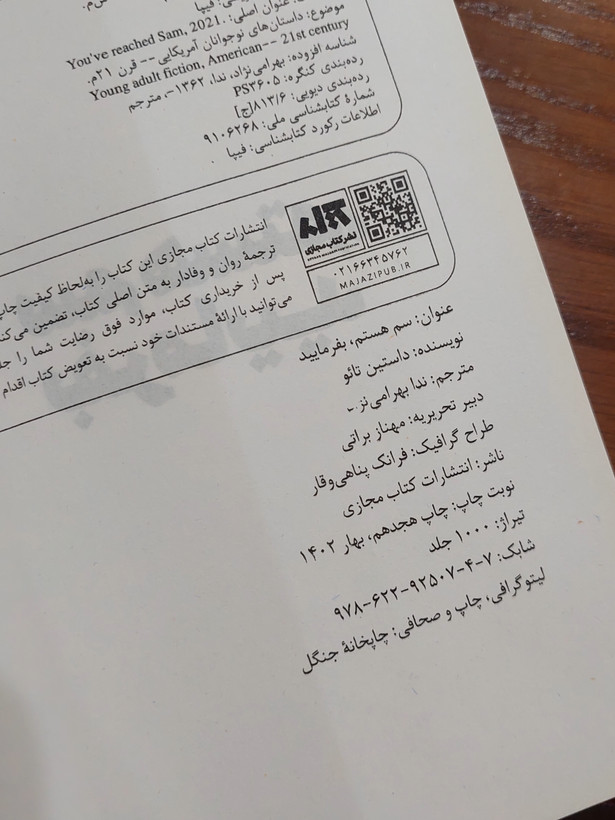 عنوان اصلی: You've reached Sam, 2021.
موضوع: داستان‌های نوجوانان آمریکایی -- قرن ۲۱م.
Young adult fiction, American-- 21st century
شناسه افزوده: بهرامی‌نژاد، ندا، ۱۳۶۲-، مترجم
رده‌بندی کنگره: PS۳۶۰۵
رده‌بندی دیویی: ۸۱۳/۶[ج]
شمارهٔ کتابشناسی ملی: ۹۱۰۶۲۶۸
اطلاعات رکورد کتابشناسی: فیپا
نشر کتاب مجازی
۰۲۱۶۶۳۴۵۷۶۲
MAJAZIPUB.IR
انتشارات کتاب مجازی این کتاب را به‌لحاظ کیفیت چاپ
ترجمهٔ روان و وفادار به متن اصلی کتاب، تضمین می‌کند
پس از خریداری کتاب، موارد فوق رضایت شما را
می‌توانید با ارائهٔ مستندات خود نسبت به تعویض کتاب اقدام
عنوان: سم هستم، بفرمایید
نویسنده: داستین تائو
مترجم: ندا بهرامی‌نژ
دبیر تحریریه: مهناز براتی
طراح گرافیک: فرانک پناهی‌وقار
ناشر: انتشارات کتاب مجازی
نوبت چاپ: چاپ هجدهم، بهار ۱۴۰۲
تیراژ: ۱۰۰۰ جلد
شابک: ۷-۴-۹۲۵۰۷-۶۲۲-۹۷۸
لیتوگرافی، چاپ و صحافی: چاپخانهٔ جنگل